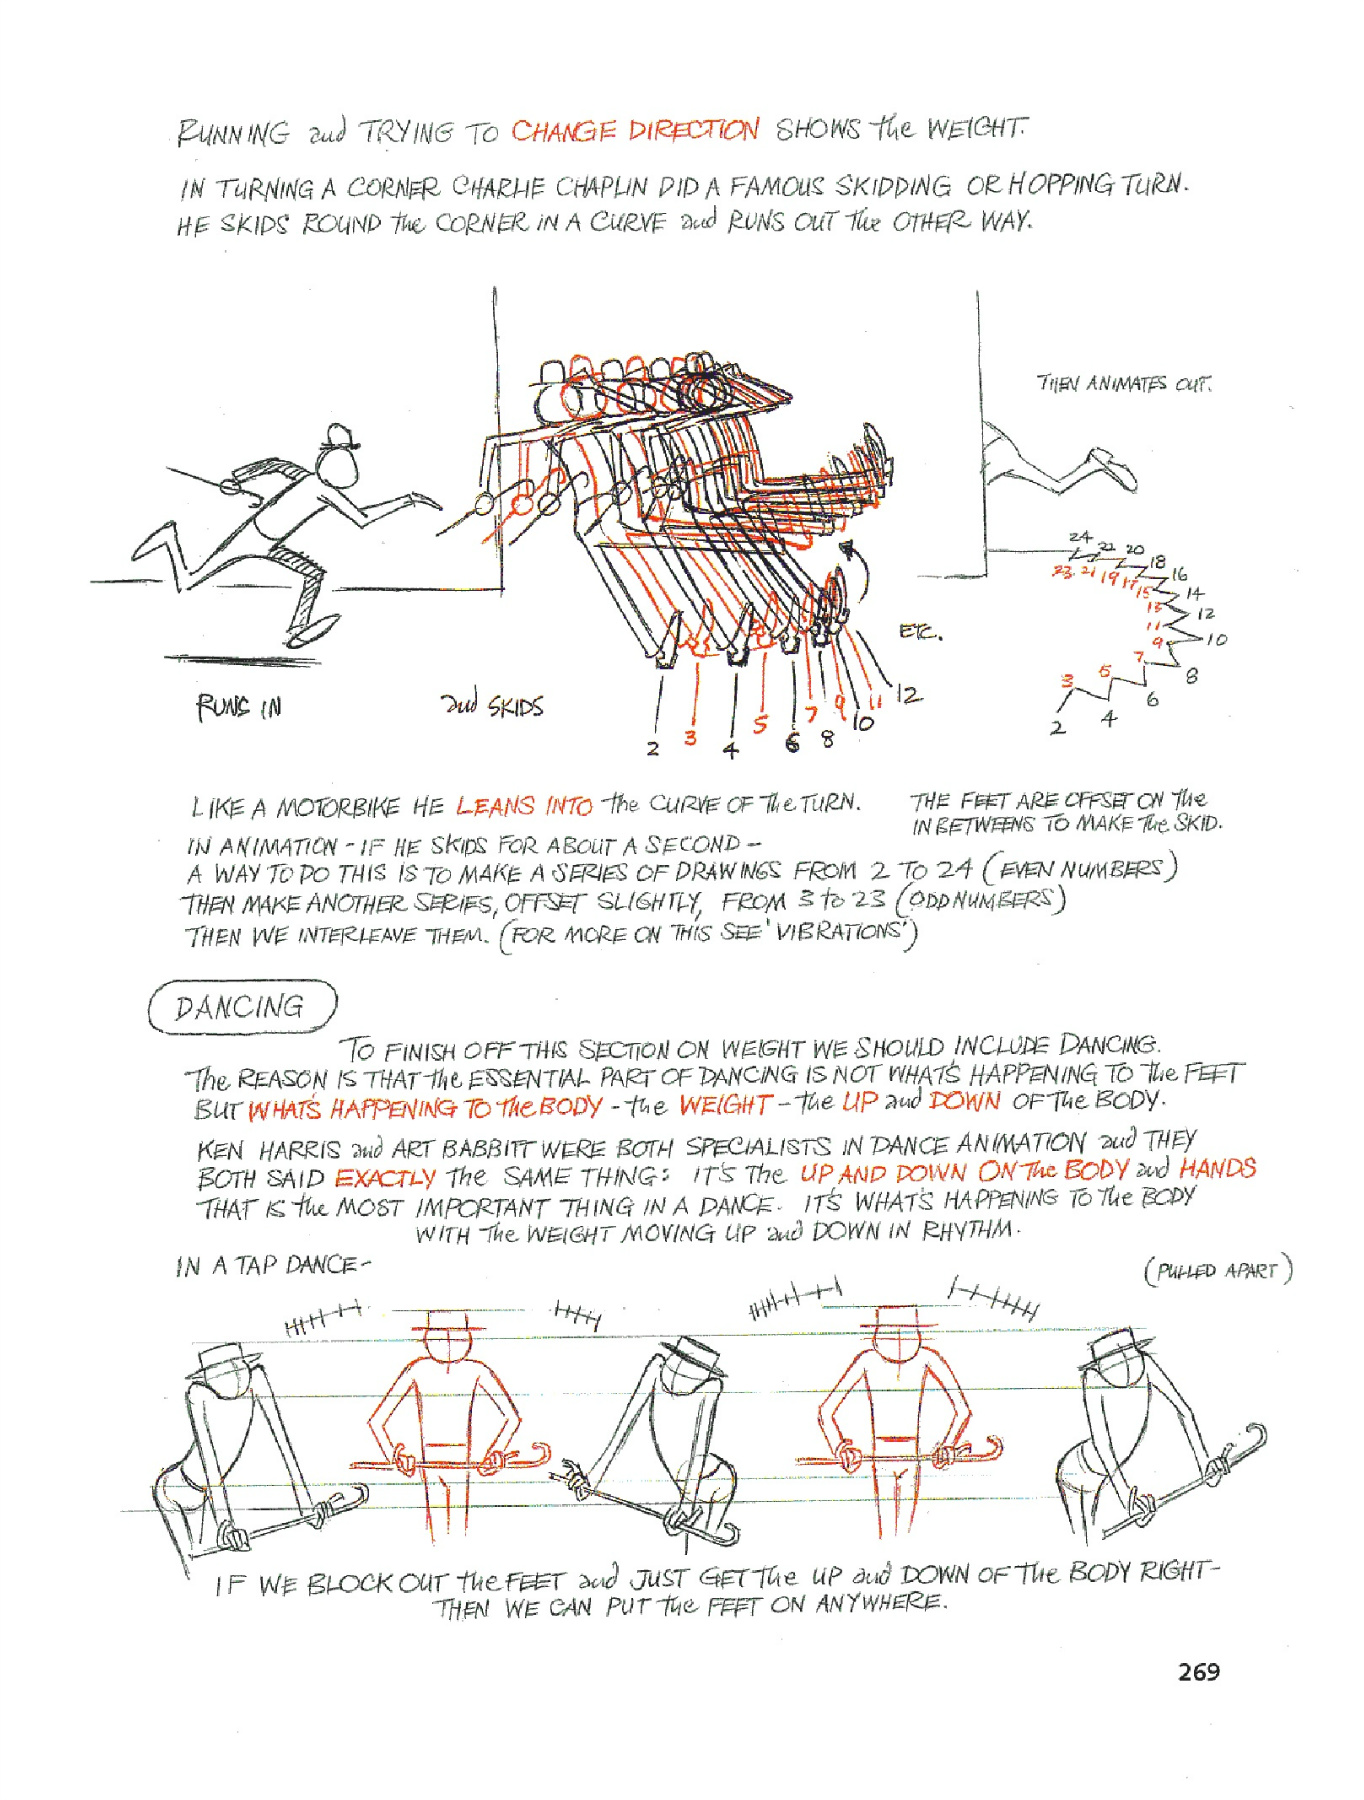 RUNNING and TRYING TO CHANGE DIRECTION SHOWS the WEIGHT.
IN TURNING A CORNER CHARLIE CHAPLIN DID A FAMOUS SKIDDING OR HOPPING TURN.
HE SKIDS ROUND the CORNER IN A CURVE and RUNS OUT the OTHER WAY.
THEN ANIMATES OUT.
24
22
20
18
16
14
12
10
8
6
4
2
23
21
19
17
15
13
11
9
7
5
3
ETC.
RUNS IN
and SKIDS
2
3
4
5
6
7
8
9
10
11
12
LIKE A MOTORBIKE HE LEANS INTO the CURVE OF the TURN.
THE FEET ARE OFFSET ON the
INBETWEENS TO MAKE the SKID.
IN ANIMATION - IF HE SKIDS FOR ABOUT A SECOND -
A WAY TO DO THIS IS TO MAKE A SERIES OF DRAWINGS FROM 2 TO 24 (EVEN NUMBERS)
THEN MAKE ANOTHER SERIES, OFFSET SLIGHTLY, FROM 3 to 23 (ODD NUMBERS)
THEN WE INTERLEAVE THEM. (FOR MORE ON THIS SEE 'VIBRATIONS')
DANCING
TO FINISH OFF THIS SECTION ON WEIGHT WE SHOULD INCLUDE DANCING.
The REASON IS THAT the ESSENTIAL PART OF DANCING IS NOT WHAT'S HAPPENING TO the FEET
BUT WHAT'S HAPPENING TO the BODY - the WEIGHT - the UP and DOWN OF the BODY.
KEN HARRIS and ART BABBITT WERE BOTH SPECIALISTS IN DANCE ANIMATION and THEY
BOTH SAID EXACTLY the SAME THING: IT'S the UP AND DOWN ON the BODY and HANDS
THAT IS the MOST IMPORTANT THING IN A DANCE. IT'S WHAT'S HAPPENING TO the BODY
WITH the WEIGHT MOVING UP and DOWN IN RHYTHM.
IN A TAP DANCE -
(PULLED APART)
IF WE BLOCK OUT the FEET and JUST GET the UP and DOWN OF the BODY RIGHT -
THEN WE CAN PUT the FEET ON ANYWHERE.
269